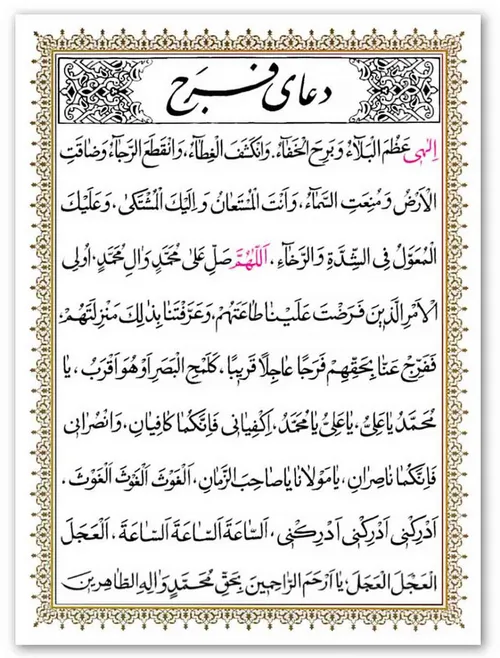 دعای فرج
اِلٰهی عَظُمَ الْبَلاٰءُ وَ بَرِحَ الْخَفٰاءُ، وَانْكَشَفَ الْغِطٰاءُ، وَانْقَطَعَ الرَّجٰاءُ وَضٰاقَتِ
الْاَرْضُ وَ مُنِعَتِ السَّمٰاءُ، وَ اَنْتَ الْمُسْتَعٰانُ وَ اِلَيْكَ الْمُشْتَكىٰ، وَ عَلَيْكَ
الْمُعَوَّلُ فِی الشِّدَّةِ وَ الرَّخٰاءِ. اَللّٰهُمَّ صَلِّ عَلىٰ مُحَمَّدٍ وَ اٰلِ مُحَمَّدٍ، اُولِی
الْاَمْرِ الَّذينَ فَرَضْتَ عَلَيْنٰا طٰاعَتَهُمْ، وَ عَرَّفْتَنٰا بِذٰلِكَ مَنْزِلَتَهُمْ
فَفَرِّجْ عَنّٰا بِحَقِّهِمْ فَرَجًا عٰاجِلًا قَريبًا، كَلَمْحِ الْبَصَرِ اَوْ هُوَ اَقْرَبُ، يٰا
مُحَمَّدُ يٰا عَلِیُّ، يٰا عَلِیُّ يٰا مُحَمَّدُ، اِكْفِيٰانی فَاِنَّكُمٰا كٰافِيٰانِ، وَ انْصُرٰانی
فَاِنَّكُمٰا نٰاصِرٰانِ، يٰا مَوْلاٰنٰا يٰا صٰاحِبَ الزَّمٰانِ، اَلْغَوْثَ اَلْغَوْثَ اَلْغَوْثَ،
اَدْرِكْنی اَدْرِكْنی اَدْرِكْنی، اَلسّٰاعَةَ اَلسّٰاعَةَ اَلسّٰاعَةَ، اَلْعَجَلَ
الْعَجَلَ الْعَجَلَ، يٰا اَرْحَمَ الرّٰاحِمينَ بِحَقِّ مُحَمَّدٍ وَ اٰلِهِ الطّٰاهِرينَ